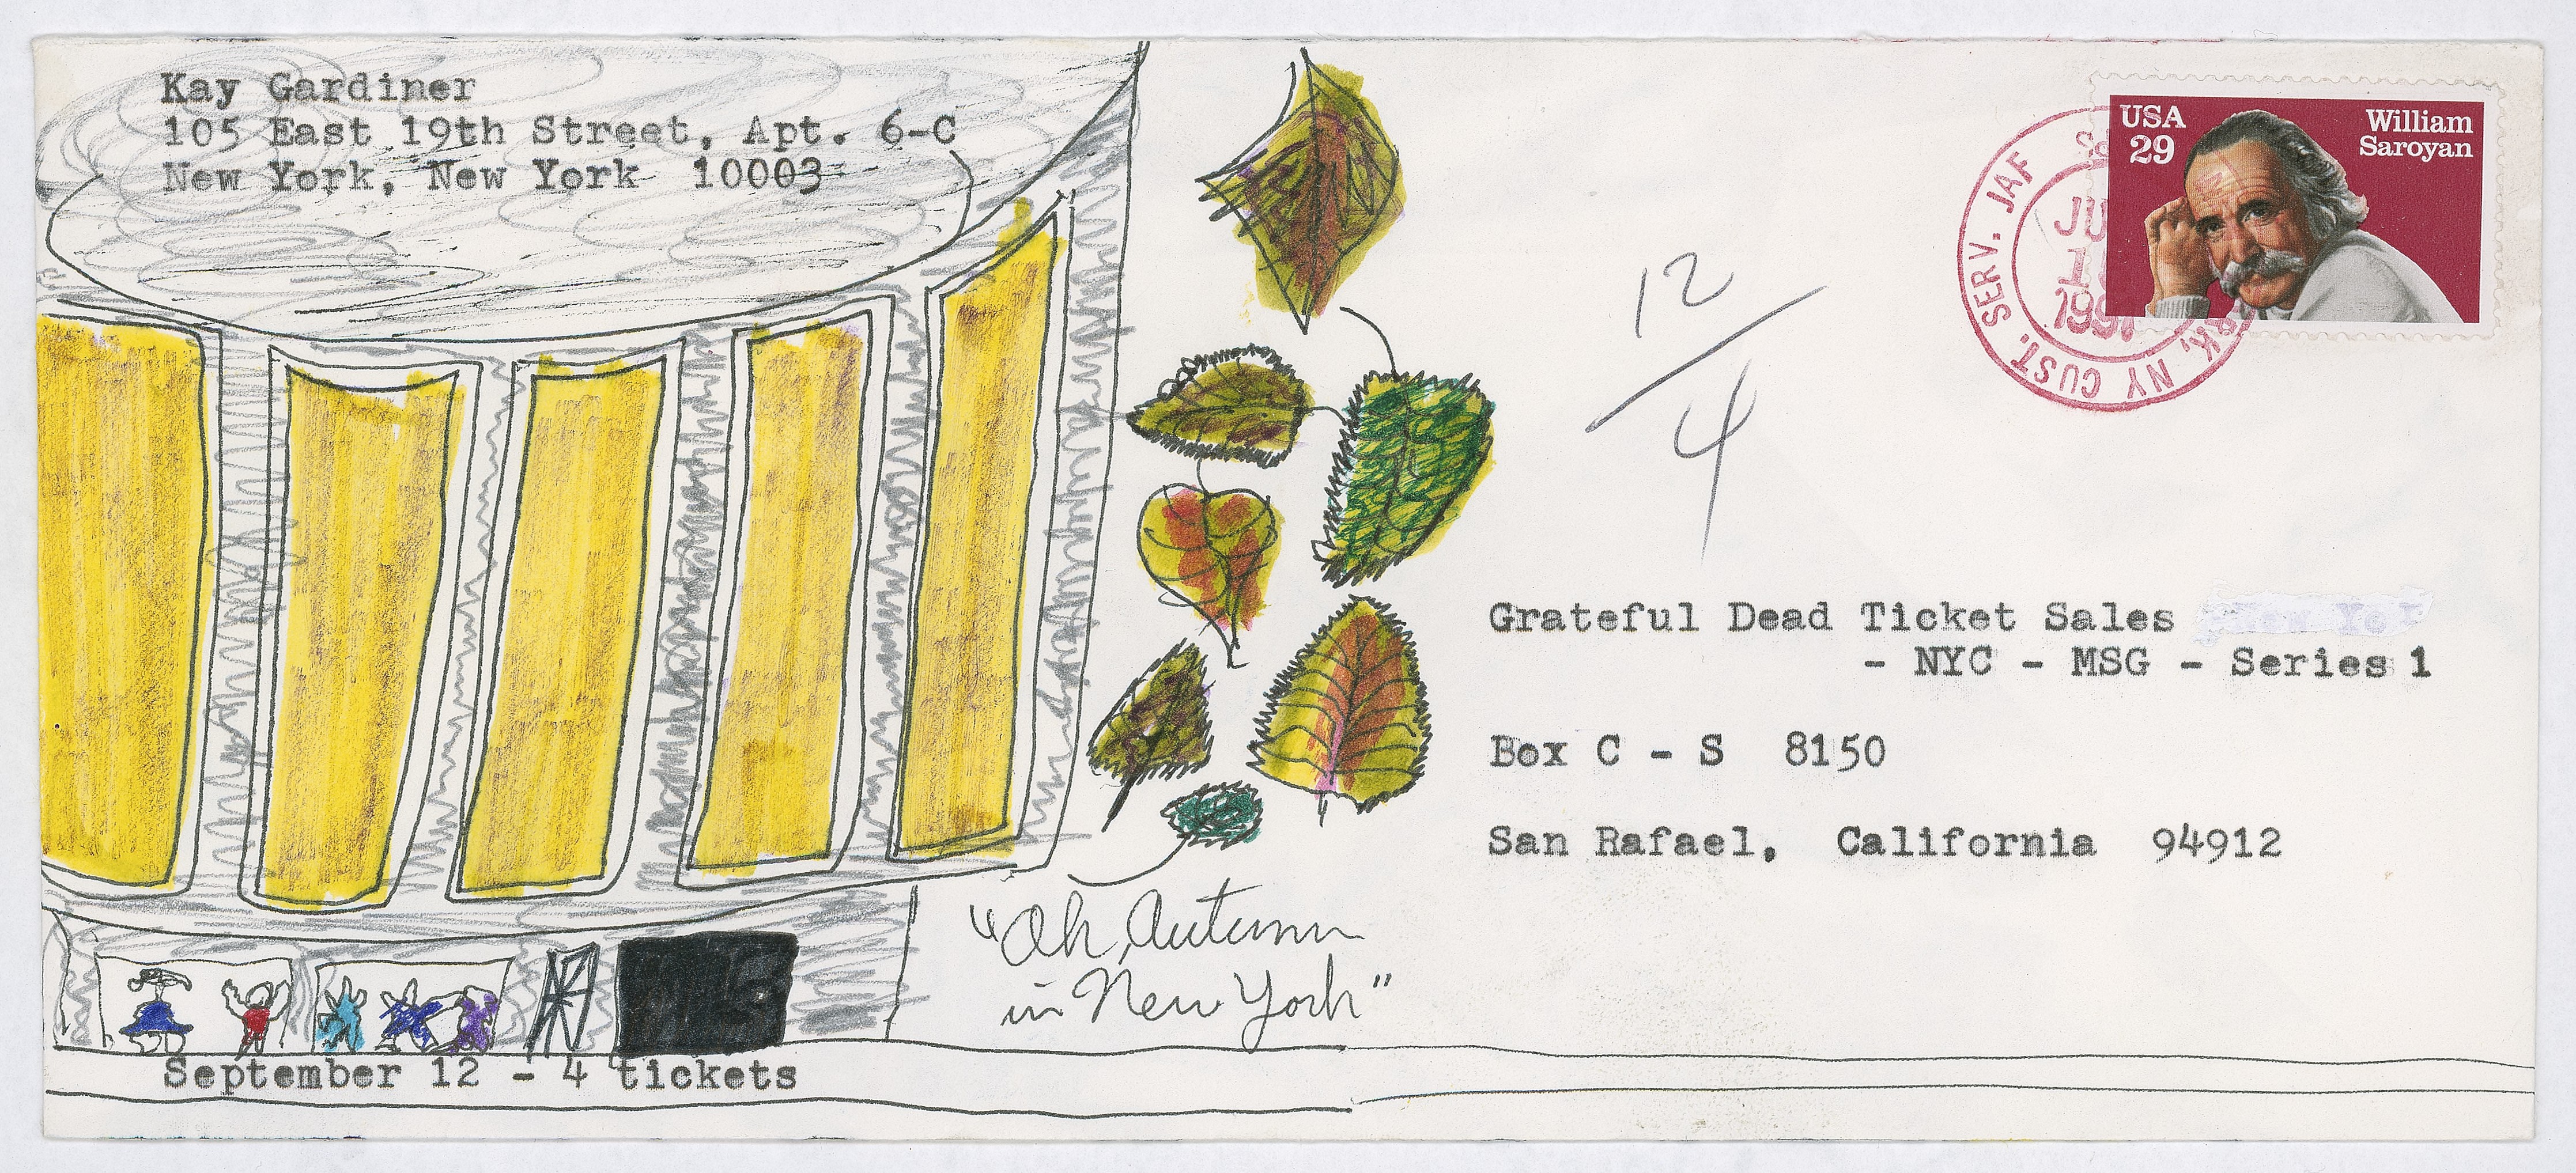 Kay Gardiner
105 East 19th Street, Apt. 6-C
New York, New York 10003
USA
29
William
Saroyan
SERV. JAF
NY CUST.
12
4
Grateful Dead Ticket Sales
- NYC - MSG - Series 1
Box C - S 8150
San Rafael, California 94912
"Oh, Autumn
in New York"
September 12 - 4 tickets